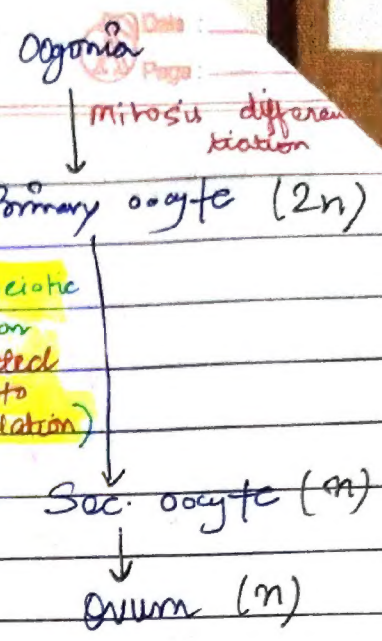 Date :
oogonia
Page :
mitosis differen
tiation
Primary oocyte (2n)
eiotic
on
to
lation)
Sec. oocyte (n)
Ovum (n)